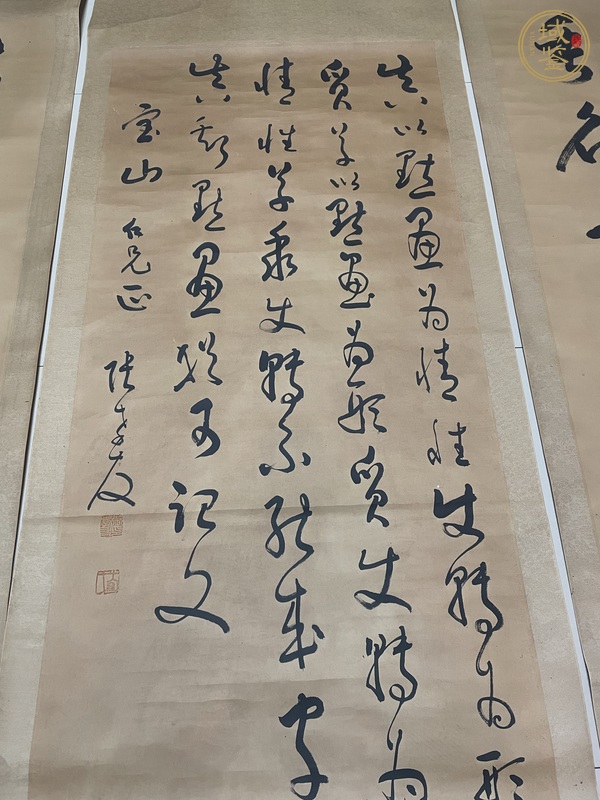 真以點畫為情性使轉為形
質草以點畫為形質使轉為
情性草乖使轉不能成字
真虧點畫猶可記文
宝山仁兄正
域鉴